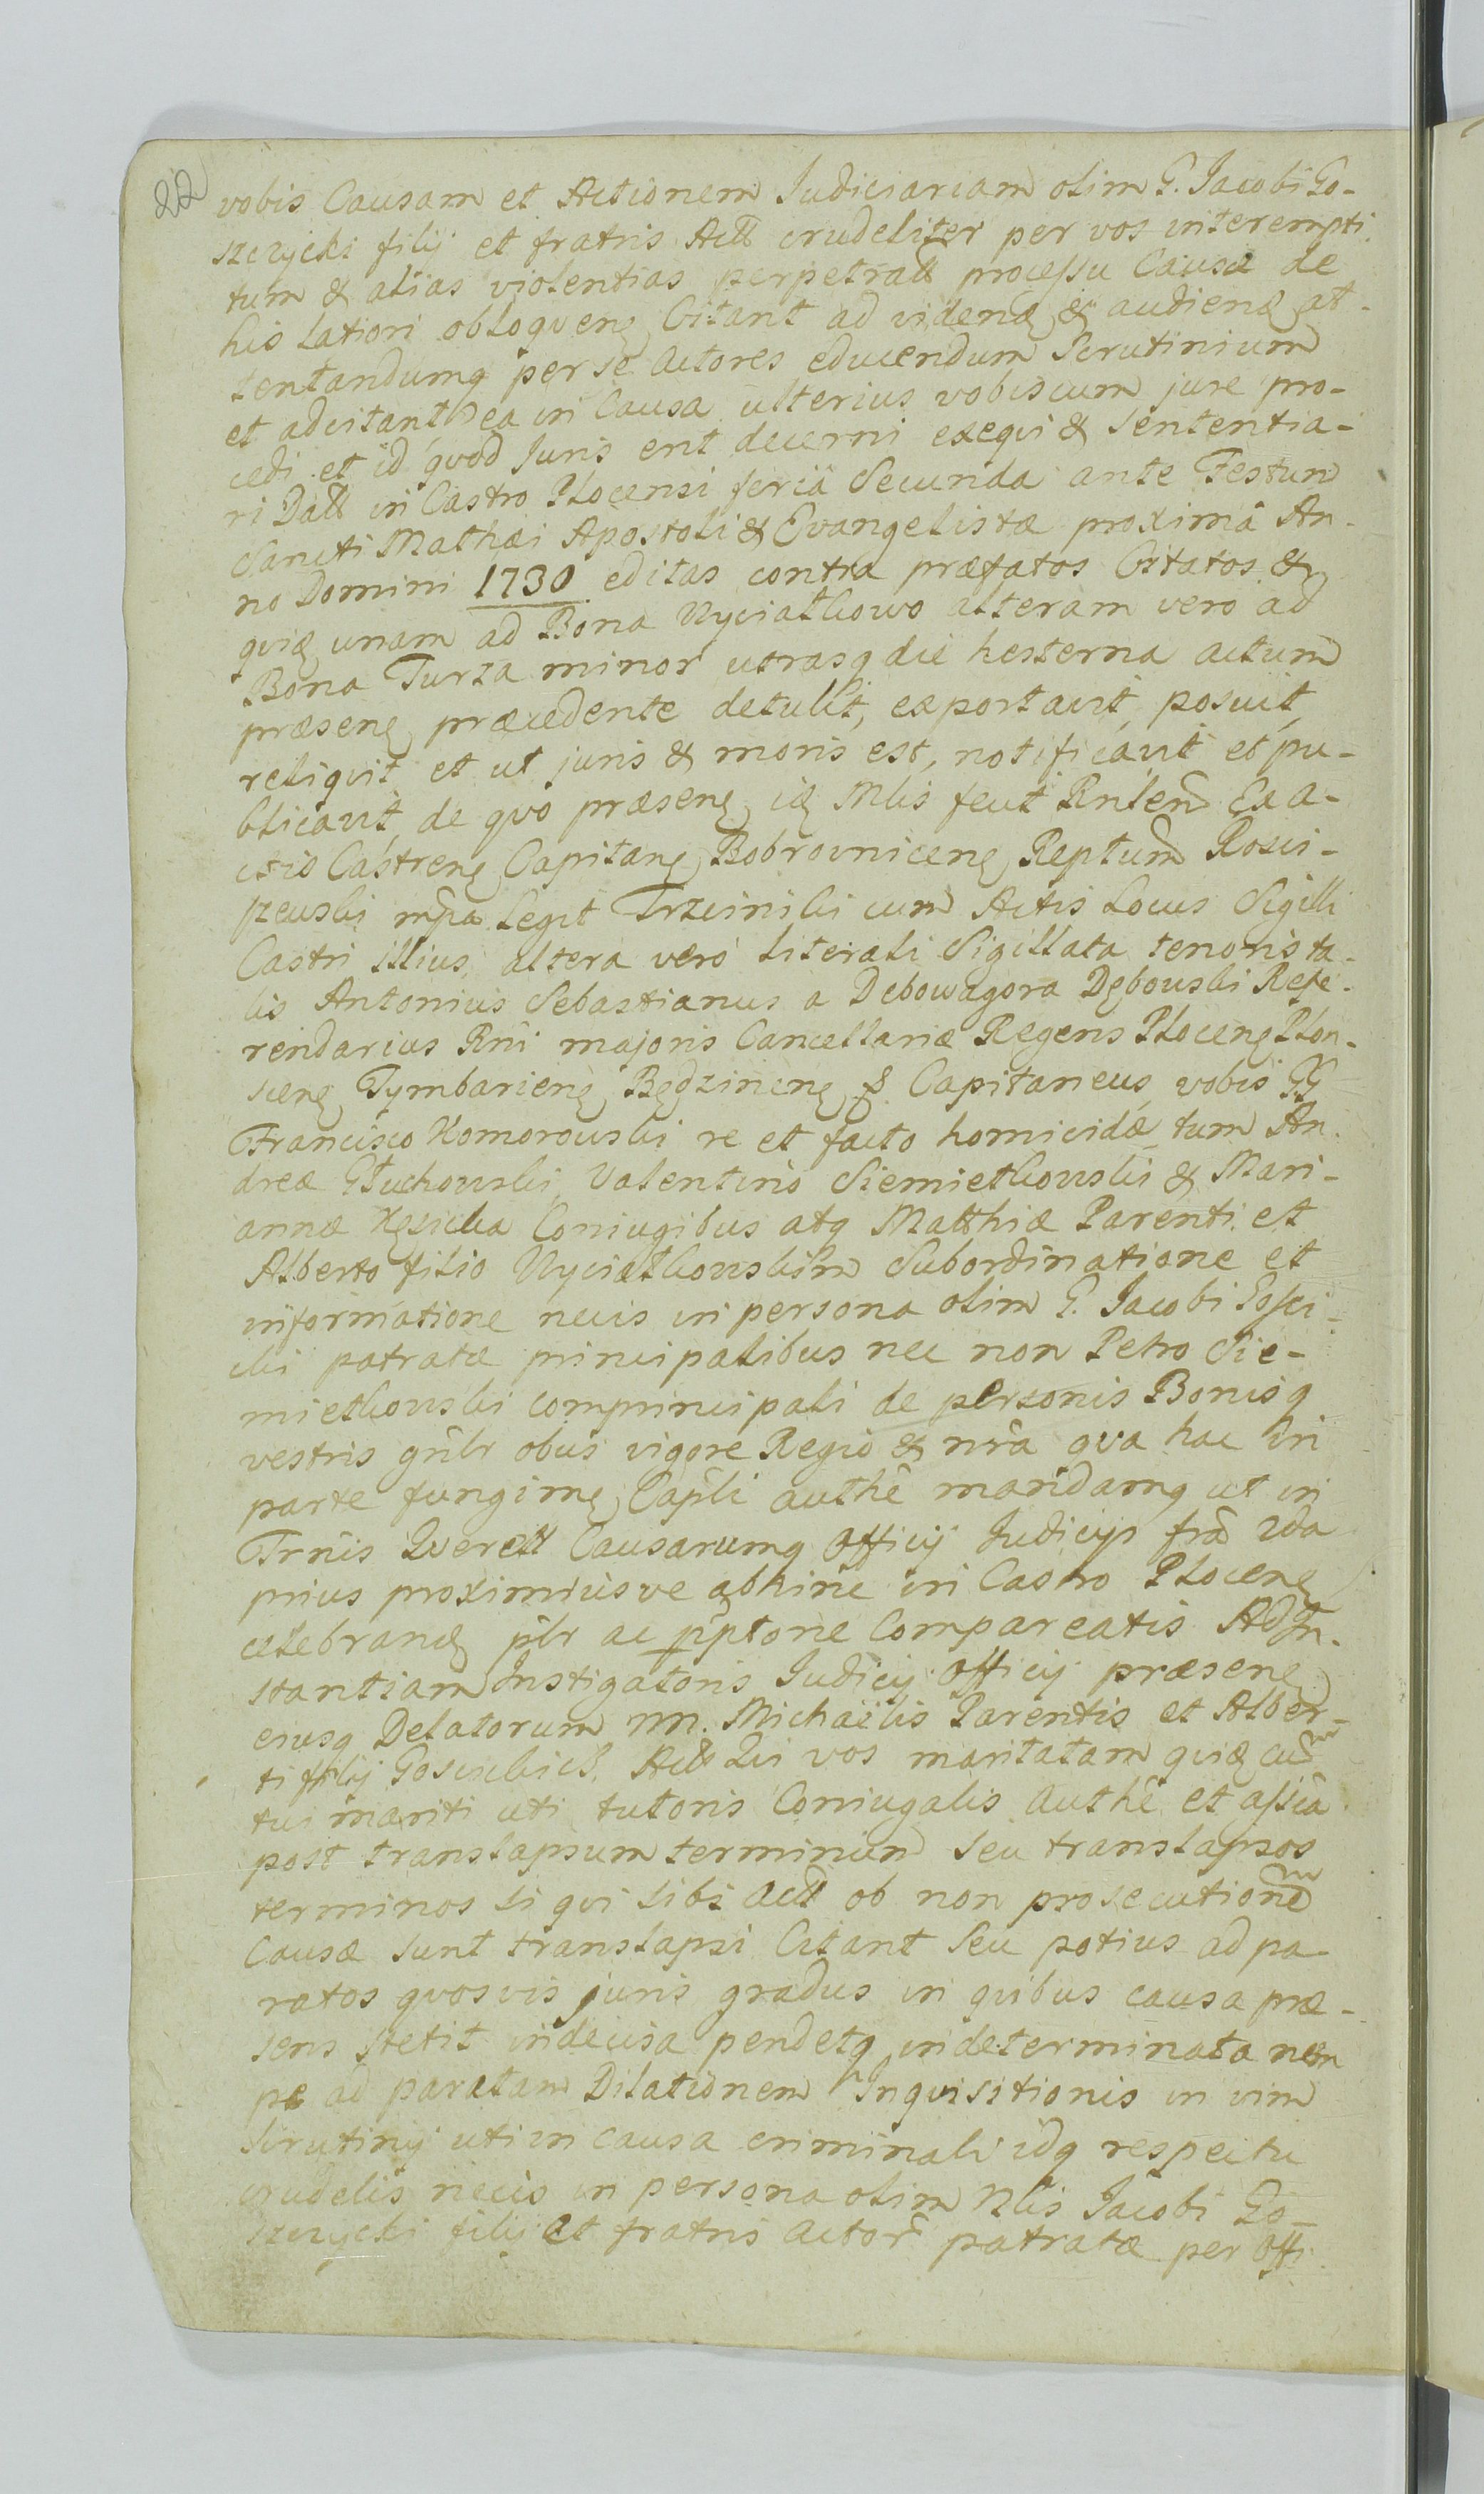 22
vobis Causam et Actionem Judiciariam olim G. Jacobi Go-
szczycki filij et fratris Actt crudeliter per vos interempti
tum & alias violentias perpetratt processu Causæ de
his latiori obloquenę Citant ad videnꝺ & audienꝺ at-
tentandumq per se Actores educendum Scrutinium
et adcitanthea in Causa ulterius vobiscum jure pro-
cedi et id quod Juris erit decerni exequi & sententia-
ri Datt in Castro Plocensi feriâ Secunda ante Festum
Sancti Mathæi Apostoli & Evangelistæ proximâ An-
no Domini 1730 editas contra præfatos Citatos &
quiꝺ unam ad Bona Nyciathowo alteram vero ad
Bona Turza minor utrasq die hesterna actum
præsenę præcedente detulit, exportavit, posuit,
reliquit et ut juris & moris est, notificavit et pu-
blicavit, de quo præsenę iꝺ Mlis fecit Rnlem Ex a-
ctis Castrenę Capitanę Bobrovnicenę Reptum Rosci-
szewski mpa Legit Trzcinski cum Actis Locus Sigilli
Castri illius, altera vero literali Sigillata tenoris ta-
lis Antonius Sebastianus a Debowagora Dębowski Refe-
rendarius Rni majoris Cancellariæ Regens Plocenę Plon-
scenę Tymbarienę Będzinenę & Capitaneus, vobis GG
Francisco Komorowski re et facto homicidæ tum An-
dreæ Głuchowski, Valentino Siemiethowski & Mari-
annæ Kęsicka Coniugibus atq Matthiæ Parenti et
Alberto filio Nyciathowskim Subordinatione et
informatione necis in persona olim G. Jacobi Goszci-
cki patratæ principalibus nec non Petro Sie-
miethowski comprincipali de personis Bonisq
vestris gnlr obus vigore Regio & nrâ qua hac in
parte fungimę Capli authe mandamq ut in
Trnis Querett Causarumq Officij Judicijs frâ 2da
prius proximiusve abhinc in Castro Plocenę
celebranꝺ plr ac pptorie Compareatis Ad In-
stantiam Instigatoris Judicij Officij præsenę
eiusq Delatorum nn. Michaëlis Parentis et Alber-
ti filij Goscickich Actt Qui vos maritatam quiꝺ cum
tui mariti uti tutoris Coniugalis Authe et assia
post translapsum terminum seu translapsos
terminos si qui sibi Actt ob non prosecutionem
Causæ sunt translapsi Citant seu potius ad pa-
ratos quosvis juris gradus in quibus causa præ-
sens stetit indecisa pendetq indeterminata nem
pe ad paratam Dilationem Inquisitionis in vim
Scrutinij uti in causa criminali idq respectu
crudelis necis in persona olim Nlis Jacobi Go-
szczycki filij et fratris Actor patratæ per Offi